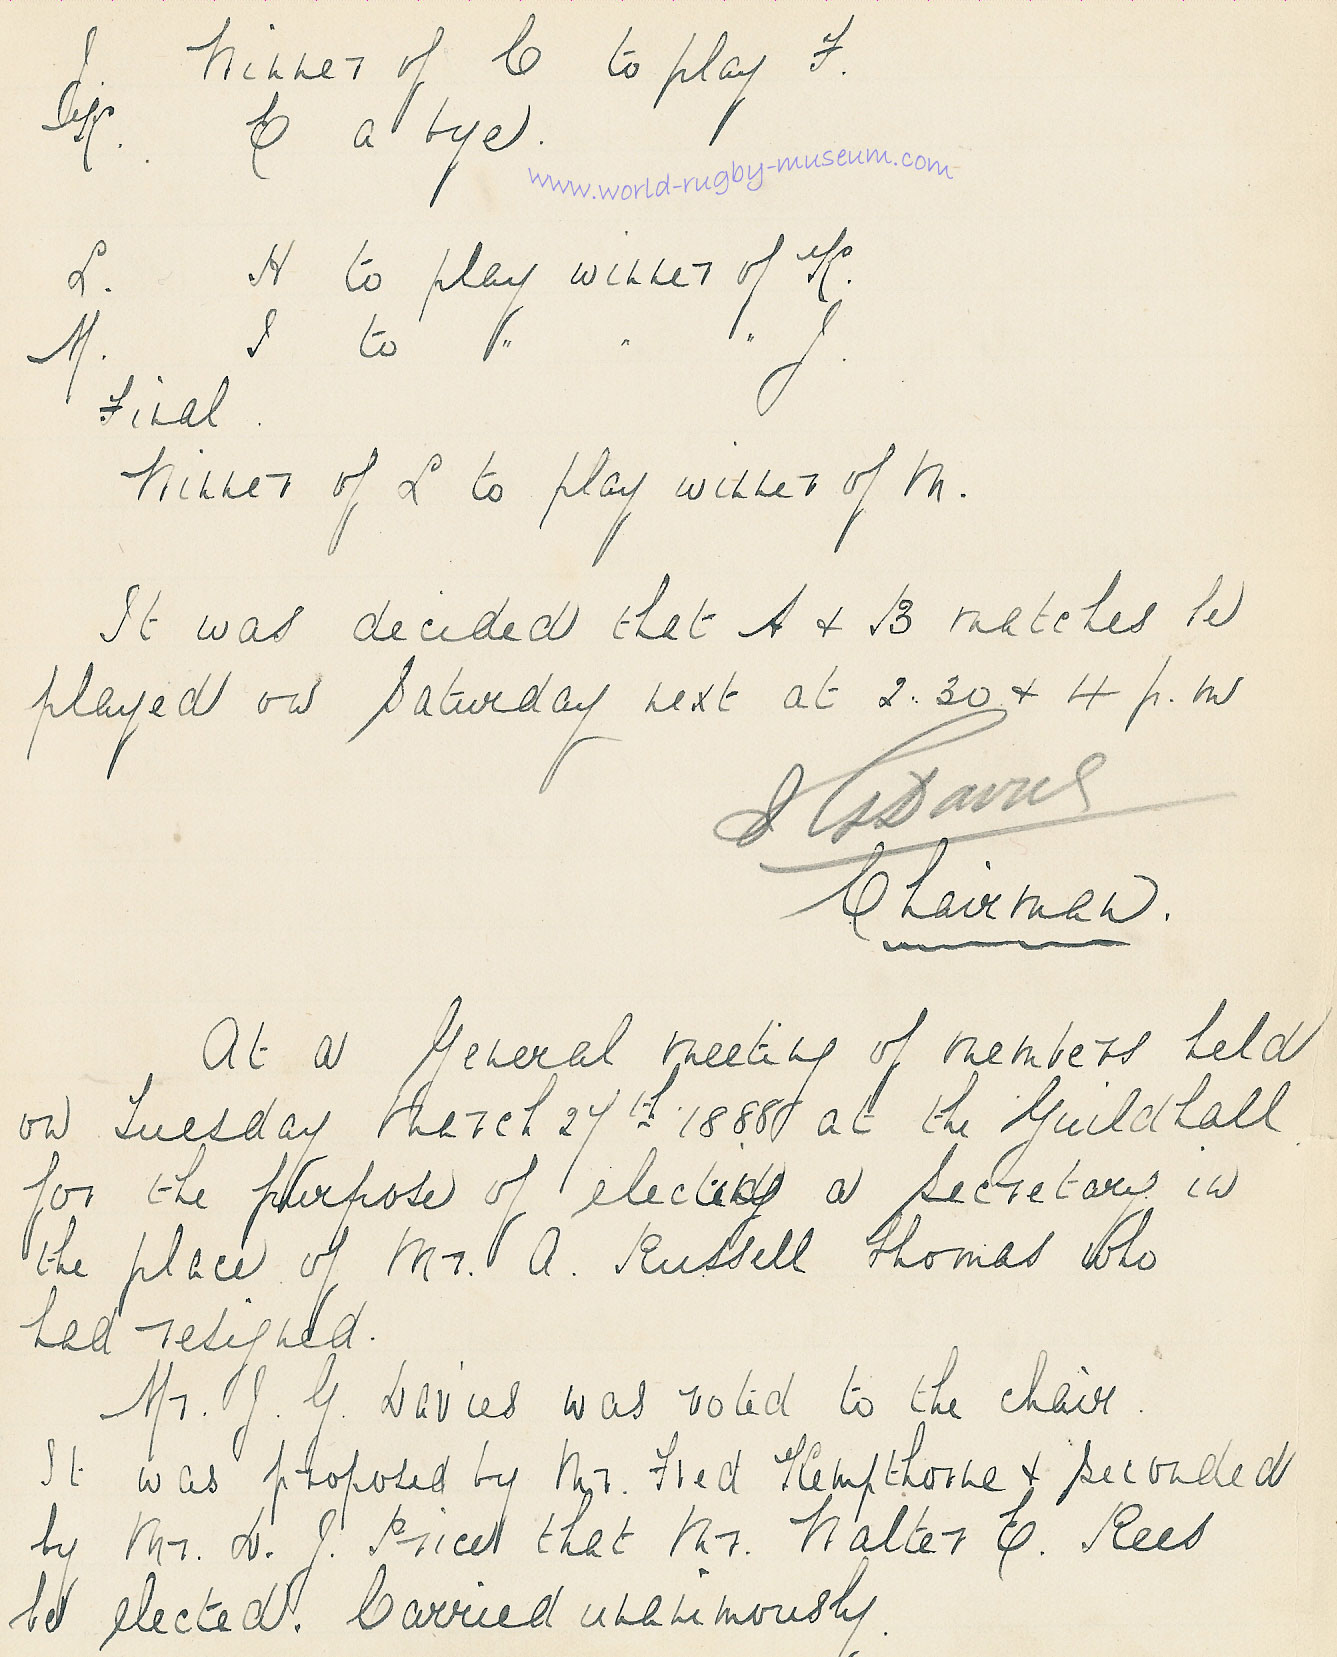 J. Winner of C to play F.
K. E a bye.
www.world-rugby-museum.com
L. H to play winner of K.
M. I to " " " J.
Final.
Winner of L to play winner of M.
It was decided that A & B matches be
played on Saturday next at 2.30 & 4 p.m
J G Davies
Chairman.
At a General meeting of members held
on Tuesday March 27th 1888 at the Guildhall
for the purpose of electing a Secretary in
the place of Mr. A. Russell Thomas who
had resigned.
Mr. J. G. Davies was voted to the chair.
It was proposed by Mr. Fred Kempthorne & seconded
by Mr. D. J. Price that Mr. Walter E. Rees
be elected. Carried unanimously.